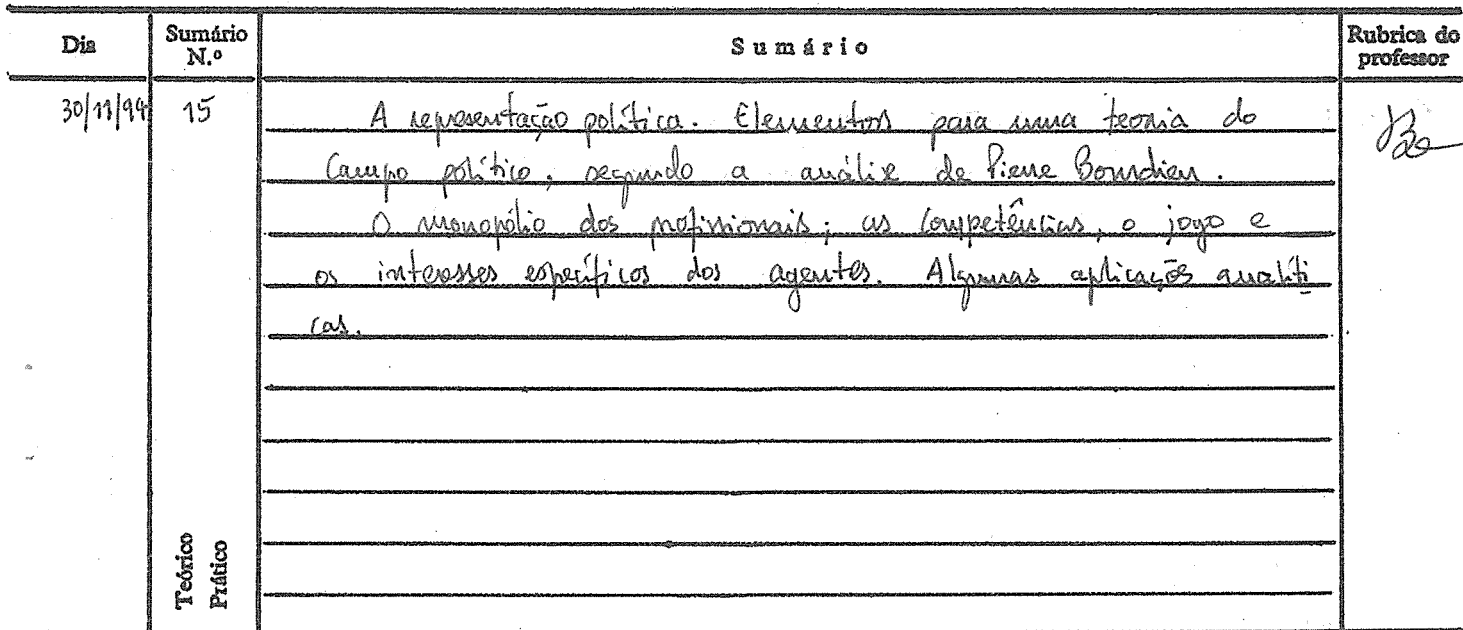 Dia Sumário N.º Sumário Rubrica do professor
30/11/94 15 A representação política. Elementos para uma teoria do
Campo político, segundo a análise de Pierre Bourdieu.
O monopólio dos profissionais; as competências, o jogo e
os interesses específicos dos agentes. Algumas aplicações analíti
cas.
Teórico
Prático